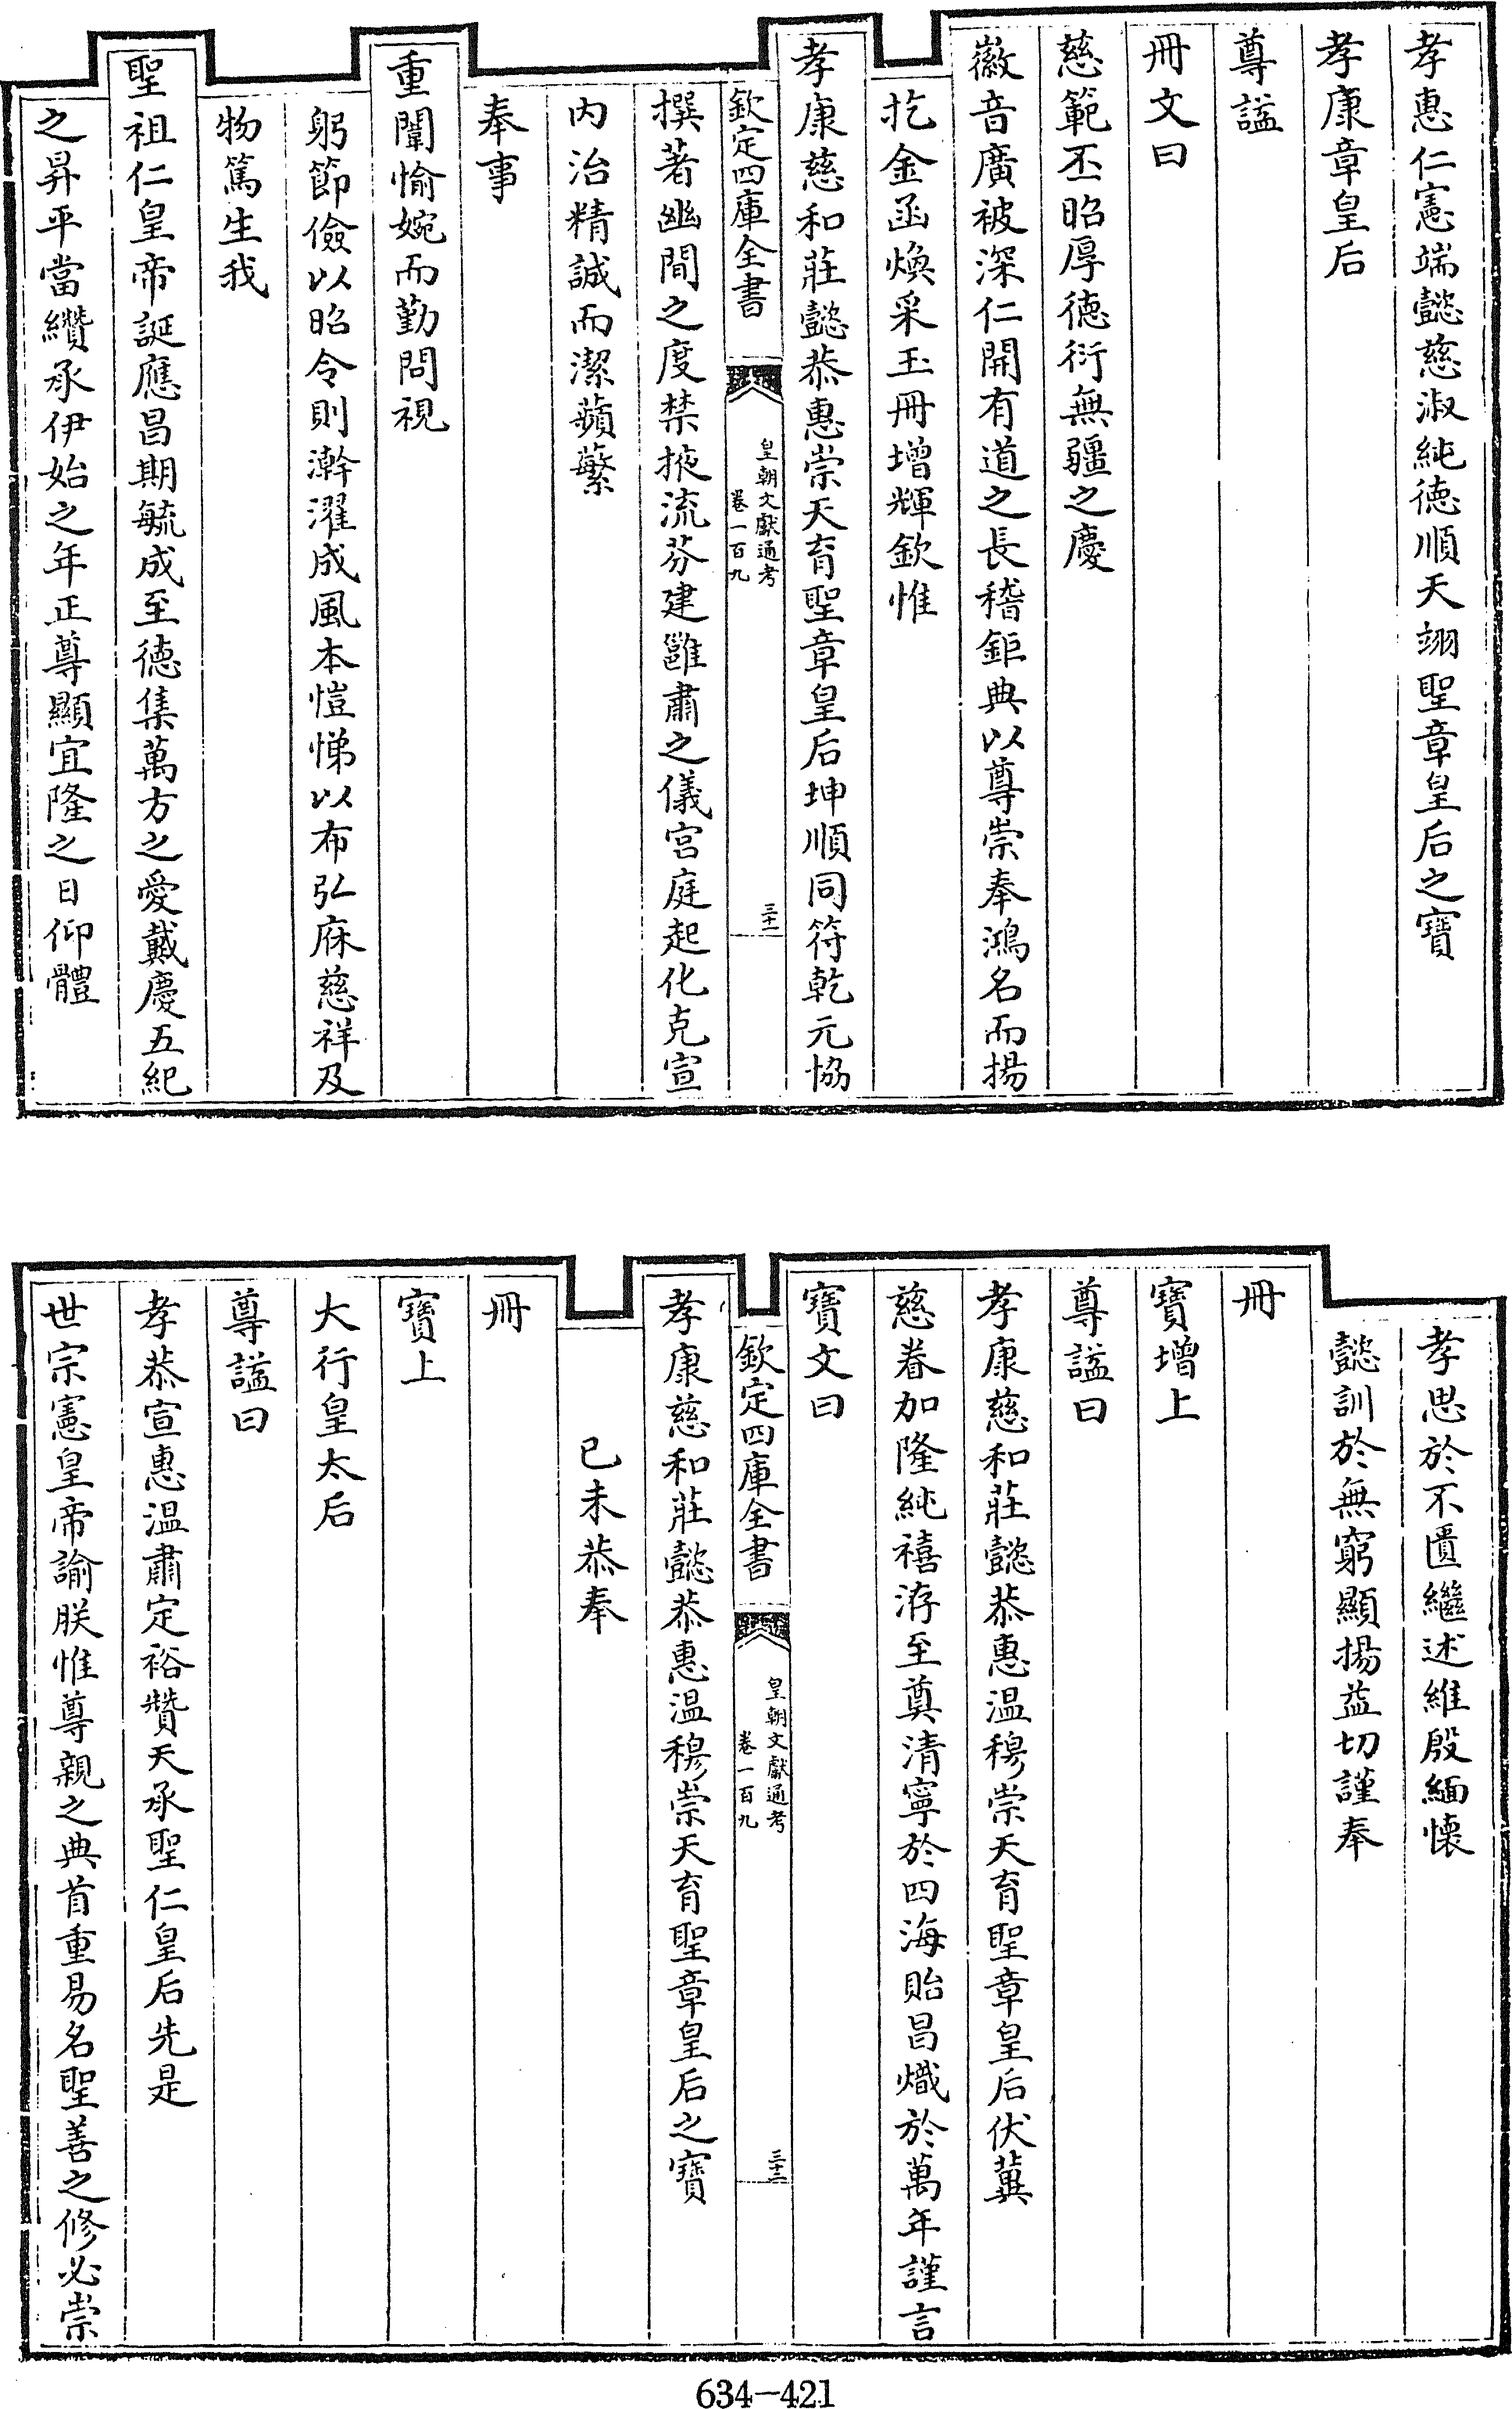 孝惠仁憲端懿慈淑純徳順天翊聖章皇后之寶
孝康章皇后
尊諡
冊文曰
慈範丕昭厚徳衍無疆之慶
徽音廣被深仁開有道之長稽鉅典以尊崇奉鴻名而揚
扢金函煥采玉冊增輝欽惟
孝康慈和莊懿恭惠崇天育聖章皇后坤順同符乾元協
欽定四庫全書
皇朝文獻通考
卷一百九
三十一
撰著幽閒之度禁掖流芬建雝肅之儀宫庭起化克宣
内治精誠而潔蘋蘩
奉事
重闈愉婉而勤問視
躬節儉以昭令則澣濯成風本愷悌以布弘庥慈祥及
物篤生我
聖祖仁皇帝誕應昌期毓成至徳集萬方之愛戴慶五紀
之昇平當纘承伊始之年正尊顯宜隆之日仰體
孝思於不匱繼述維殷緬懷
懿訓於無窮顯揚益切謹奉
冊
寶增上
尊諡曰
孝康慈和莊懿恭惠温穆崇天育聖章皇后伏冀
慈眷加隆純禧洊至奠清寧於四海貽昌熾於萬年謹言
寶文曰
孝康慈和莊懿恭惠温穆崇天育聖章皇后之寶
欽定四庫全書
皇朝文獻通考
卷一百九
三十二
已未恭奉
冊
寶上
大行皇太后
尊諡曰
孝恭宣惠温肅定裕贊天承聖仁皇后先是
世宗憲皇帝諭朕惟尊親之典首重易名聖善之修必崇
634-421